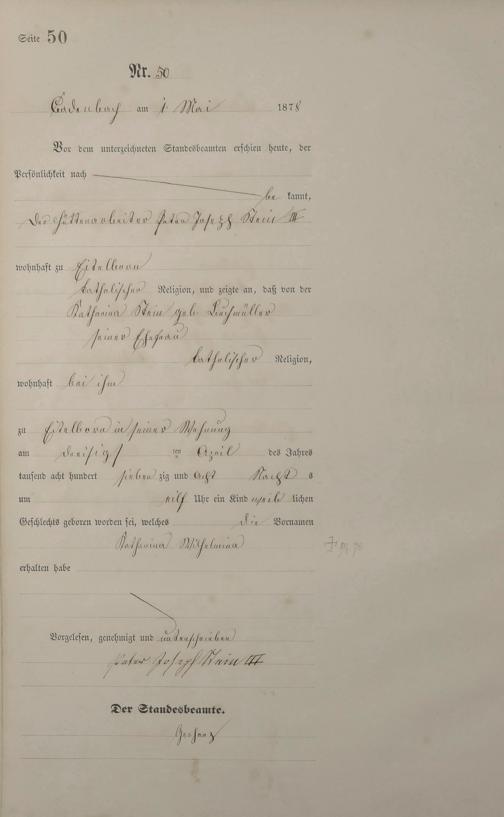 Seite 50
Nr. 50
Cadenbach am 1 Mai 1878
Vor dem unterzeichneten Standesbeamten erschien heute, der
Persönlichkeit nach
be kannt,
Der Hüttenarbeiter Peter Joseph Stein III
wohnhaft zu Eitelborn
katholischer Religion, und zeigte an, daß von der
Katharina Stein geb.
seiner Ehefrau
katholischer Religion,
wohnhaft bei ihm
zu Eitelborn in seiner Wohnung
am dreißigsten April des Jahres
tausend acht hundert sieben zig und acht Nacht s
um eilf Uhr ein Kind weib lichen
Geschlechts geboren worden sei, welches die Vornamen
Katharina Wilhelmina
erhalten habe
Vorgelesen, genehmigt und unterschrieben
Peter Joseph Stein III
Der Standesbeamte.